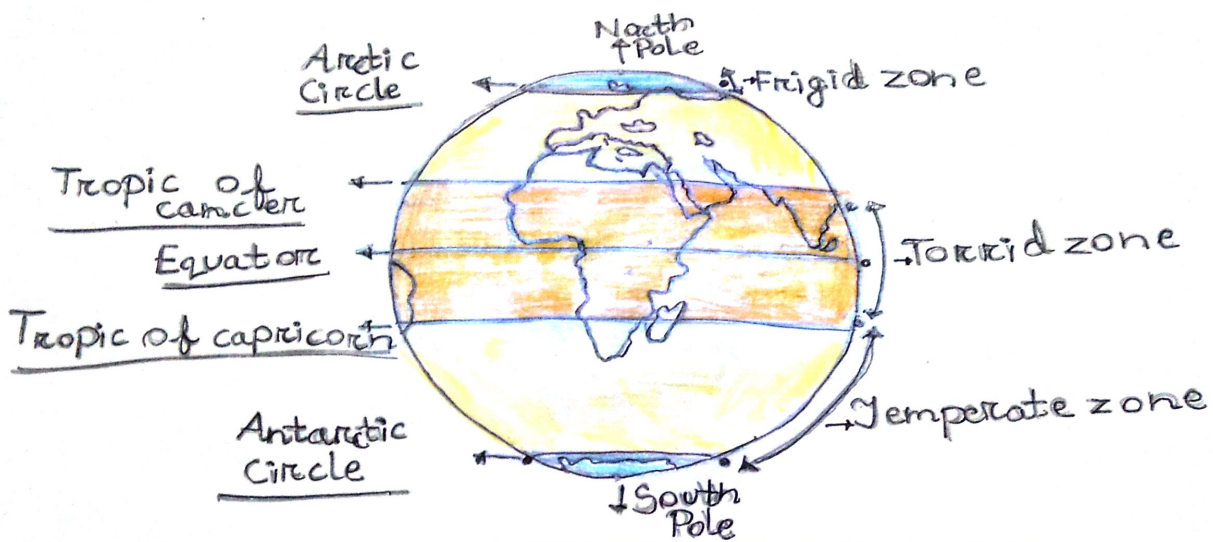 North
Pole
Arctic
Circle
Frigid zone
Tropic of
cancer
Equator
Torrid zone
Tropic of capricorn
Temperate zone
Antarctic
Circle
South
Pole